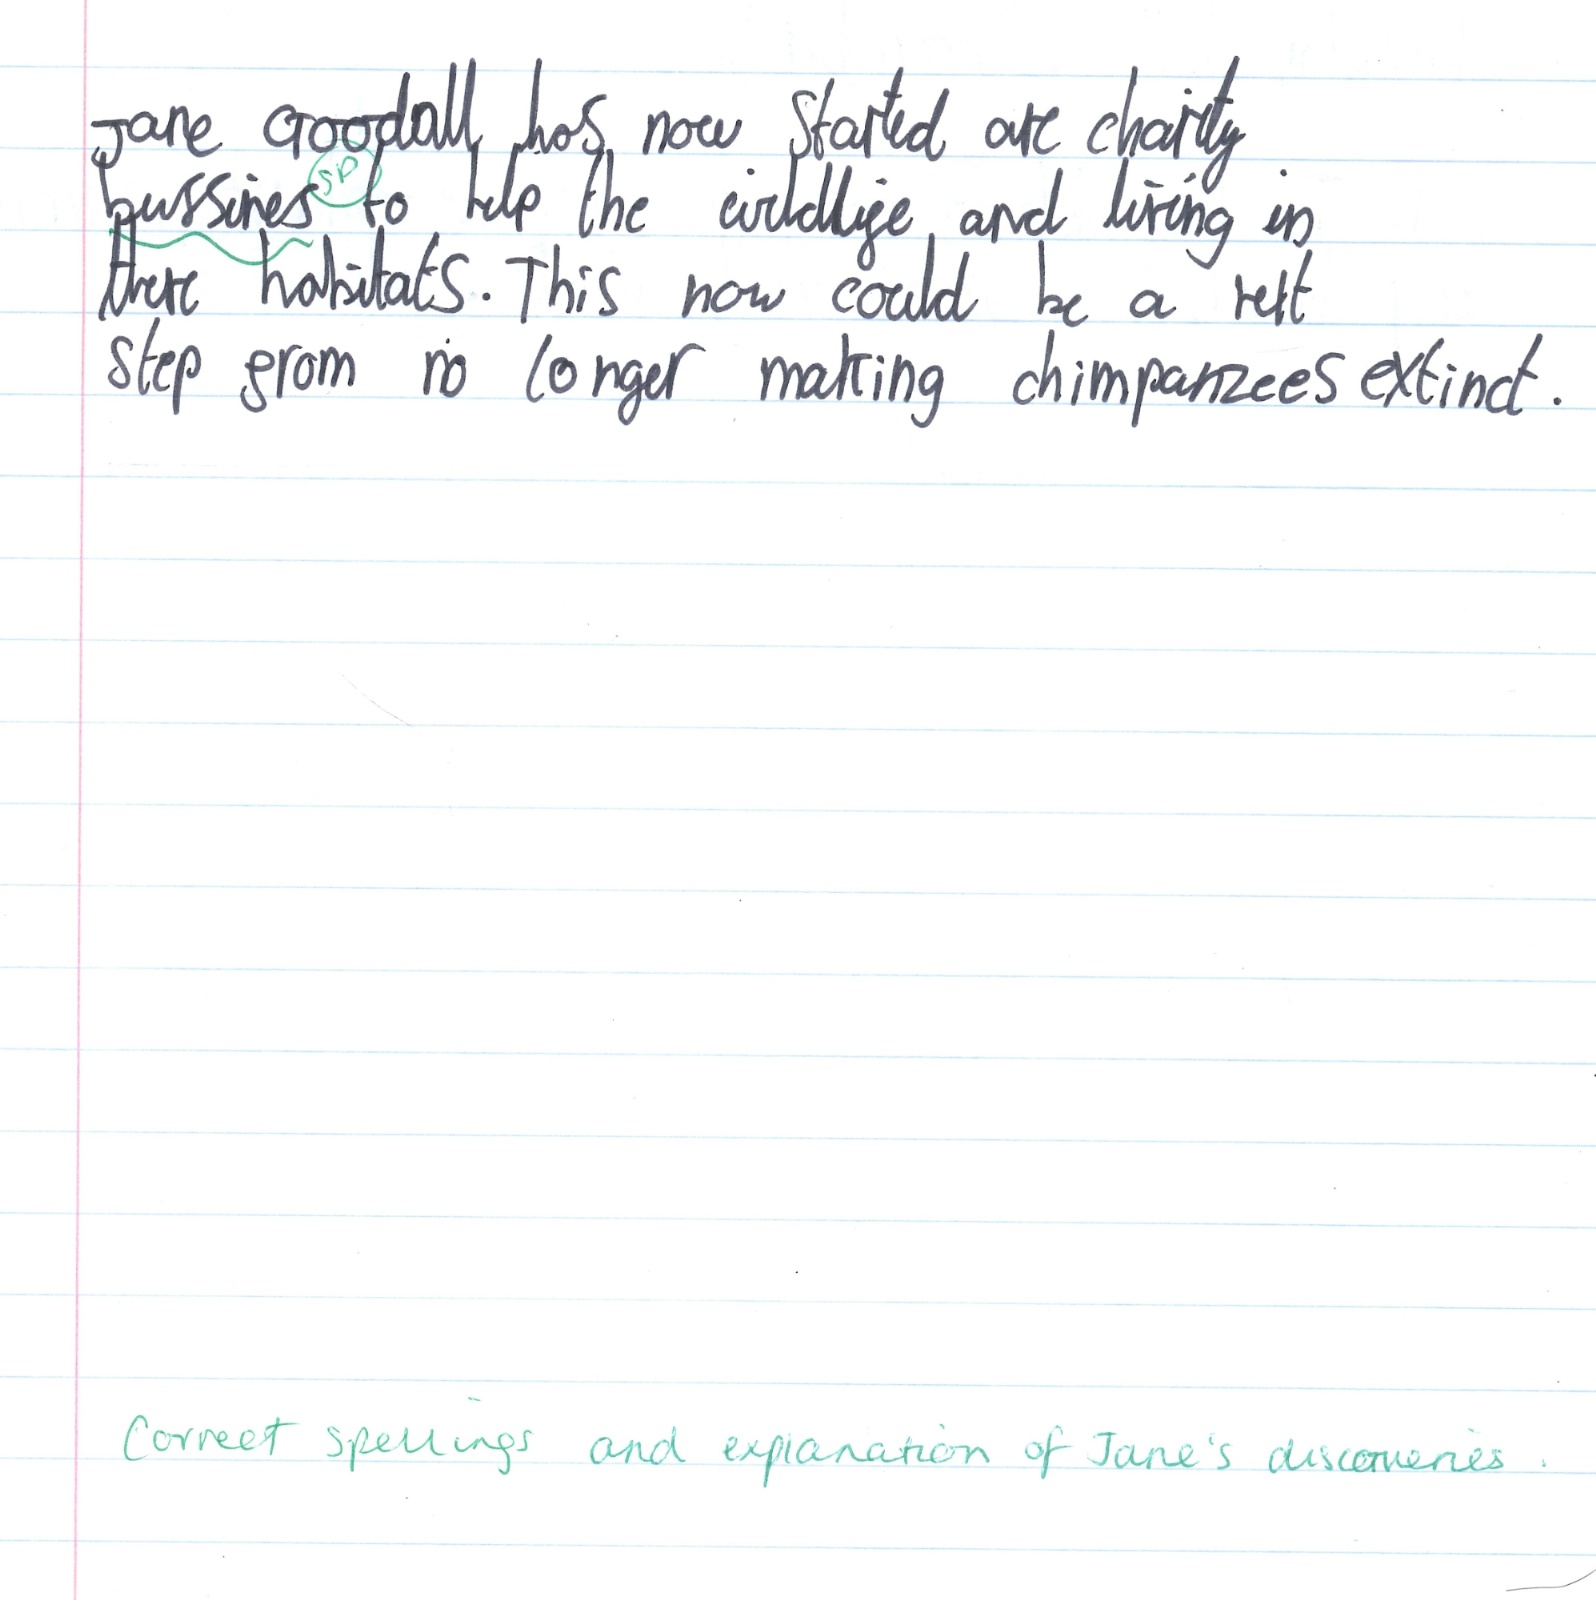 Jane Goodall has now started are charity
bussines sp to help the wildlife and living in
there habitats. This now could be a
step from no longer making chimpanzees extinct.
Correct spellings and explanation of Jane's discoveries.